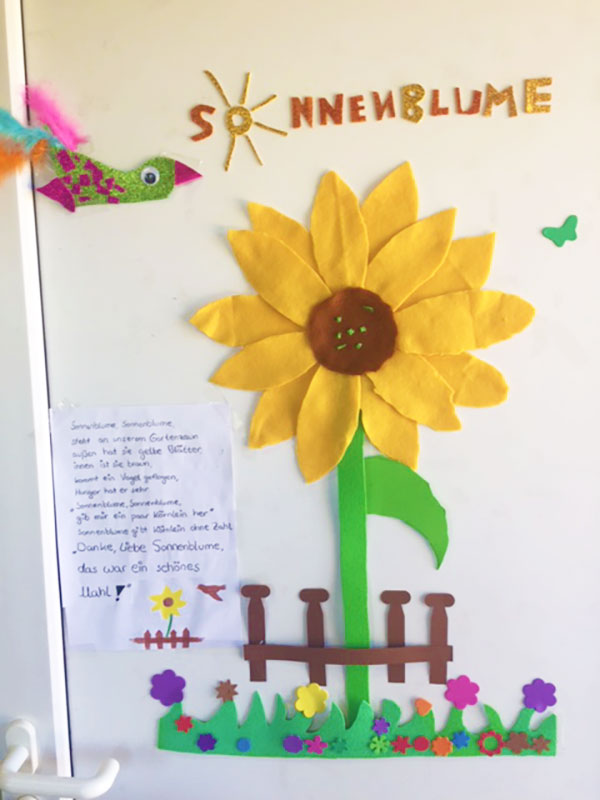 SONNENBLUME
Sonnenblume, Sonnenblume,
steht an unserem Gartenzaun
außen hat sie gelbe Blätter,
innen ist sie braun,
kommt ein Vogel geflogen,
Hunger hat er sehr
„Sonnenblume, Sonnenblume,
gib mir ein paar Körnlein her"
Sonnenblume gibt Körnlein ohne Zahl
„Danke, liebe Sonnenblume,
das war ein schönes
Mahl!"